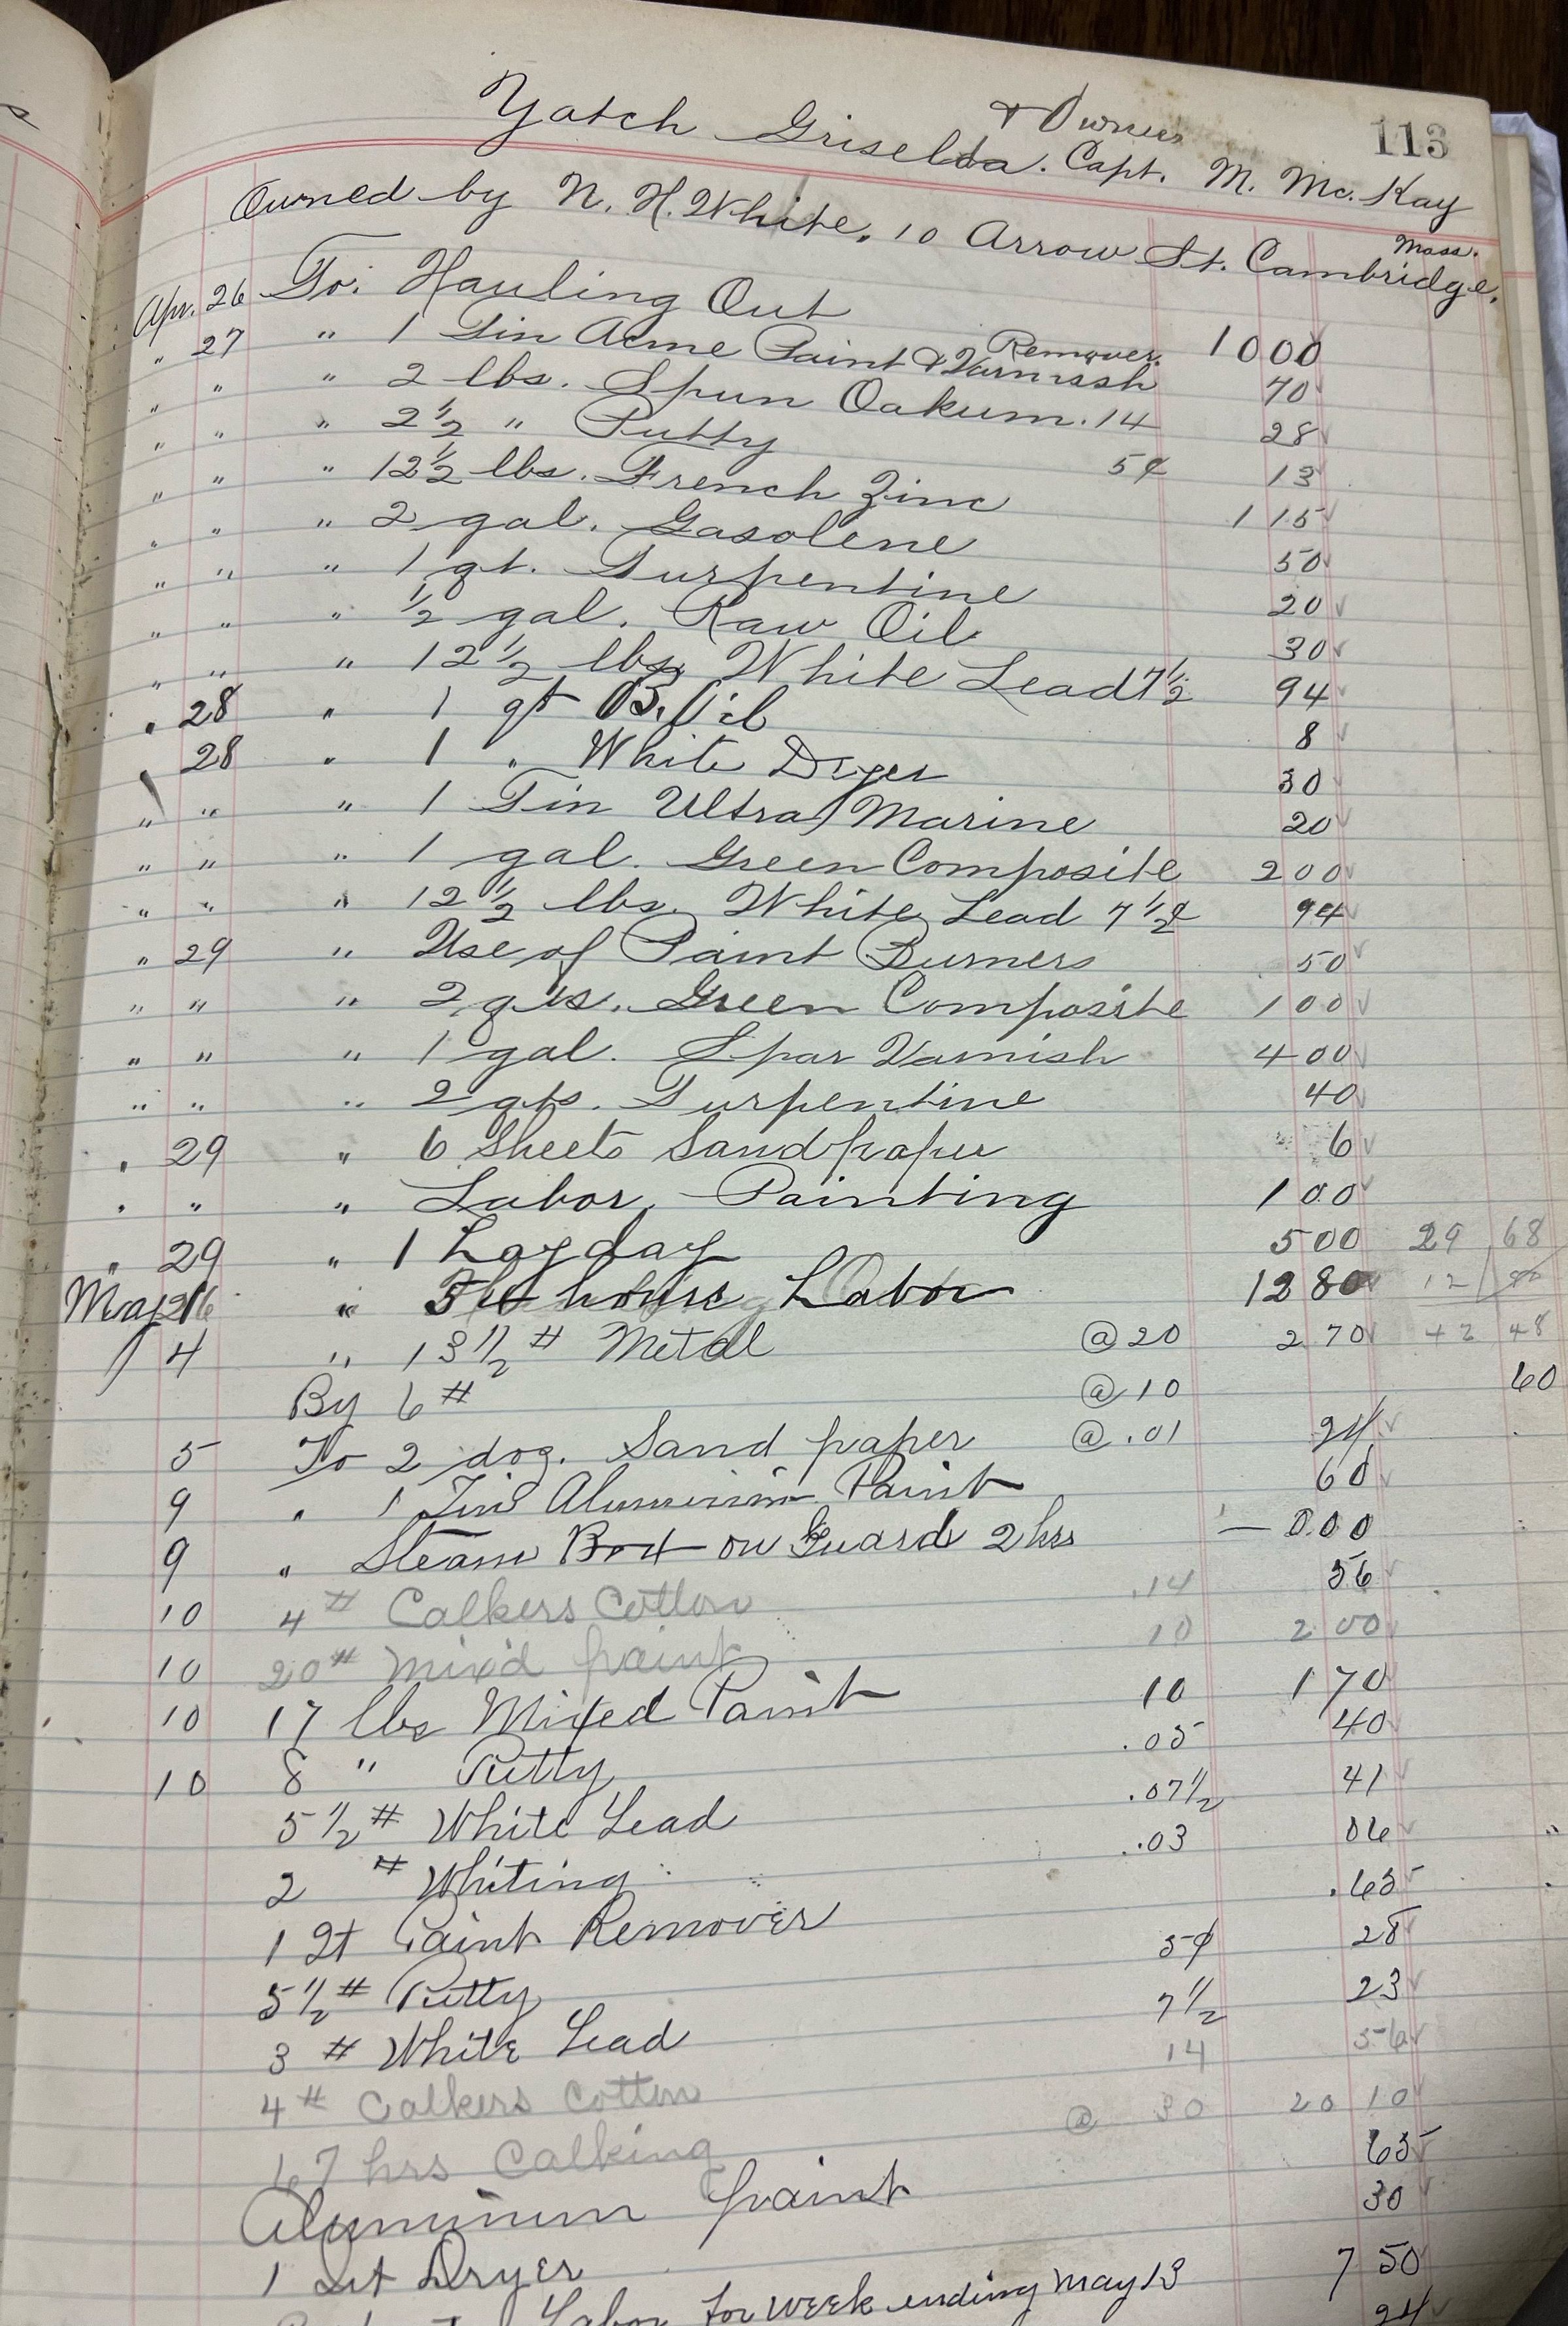 113
Yatch Griselda. Capt. & Owner M. Mc. Kay
Owned by N. H. White, 10 Arrow St. Cambridge, Mass.
Apr. 26 To: Hauling Out 10 00
" 27 " 1 Tin Acme Paint & Varnish Remover. 70
" " " 2 lbs. Spun Oakum. 14 28
" " " 2 1/2 " Putty 5¢ 13
" " " 12 1/2 lbs. French Zinc 1 15
" " " 2 gal. Gasolene 50
" " " 1 qt. Turpentine 20
" " " 1/2 gal. Raw Oil 30
" " " 12 1/2 lbs. White Lead 7 1/2 94
" 28 " 1 qt B. Oil 8
" 28 " 1 " White Dryer 30
" " " 1 Tin Ultra Marine 20
" " " 1 gal. Green Composite 2 00
" " " 12 1/2 lbs. White Lead 7 1/2¢ 94
" 29 " Use of Paint Burners 50
" " " 2 qts. Green Composite 1 00
" " " 1 gal. Spar Varnish 4 00
" " " 2 qts. Turpentine 40
" 29 " 6 Sheets Sandpaper 6
" " " Labor, Painting 1 00
" 29 " 1 Layday 5 00 29 68
May " hours Labor 12 80 12 80
4 " 13 1/2 # Metal @ 20 2 70 42 48
By 6 # @ 10 60
5 To 2 doz. Sand paper @ .01 24
9 " 1 Tin Aluminim Paint 60
9 " Steam Box on Guards 2 hrs
10 4 # Calkers Cotton .14 56
10 20 # Mix'd paint 10 2 00
10 17 lbs Mixed Paint 10 1 70
10 8 " Putty .05 40
5 1/2 # White Lead .07 1/2 41
2 # Whiting .03 06
1 Qt Paint Remover .65
5 1/2 # Putty 5¢ 28
3 # White Lead 7 1/2 23
4 # Calkers Cotton 14 56
67 hrs Calking @ 30 20 10
Aluminum paint 65
1 Qt Dryer 30
Labor for week ending May 13 7 50
24